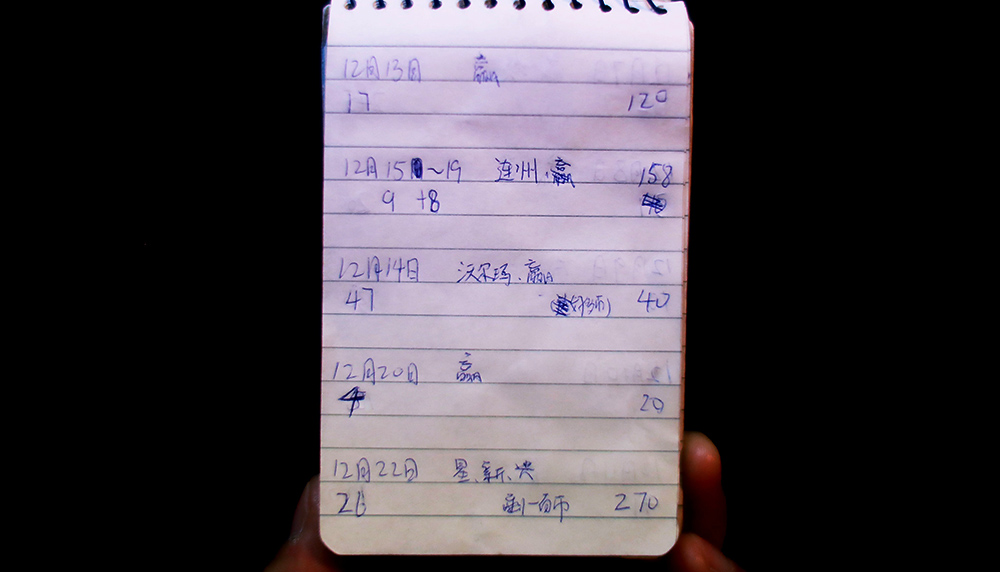 12月13日 赢
17 120
12月15~19 连州.赢 158
9 +8
12月14日 沃尔玛.赢
47 40
12月20日 赢
4 20
12月22日 星.新.兴
26 剩一百币 270